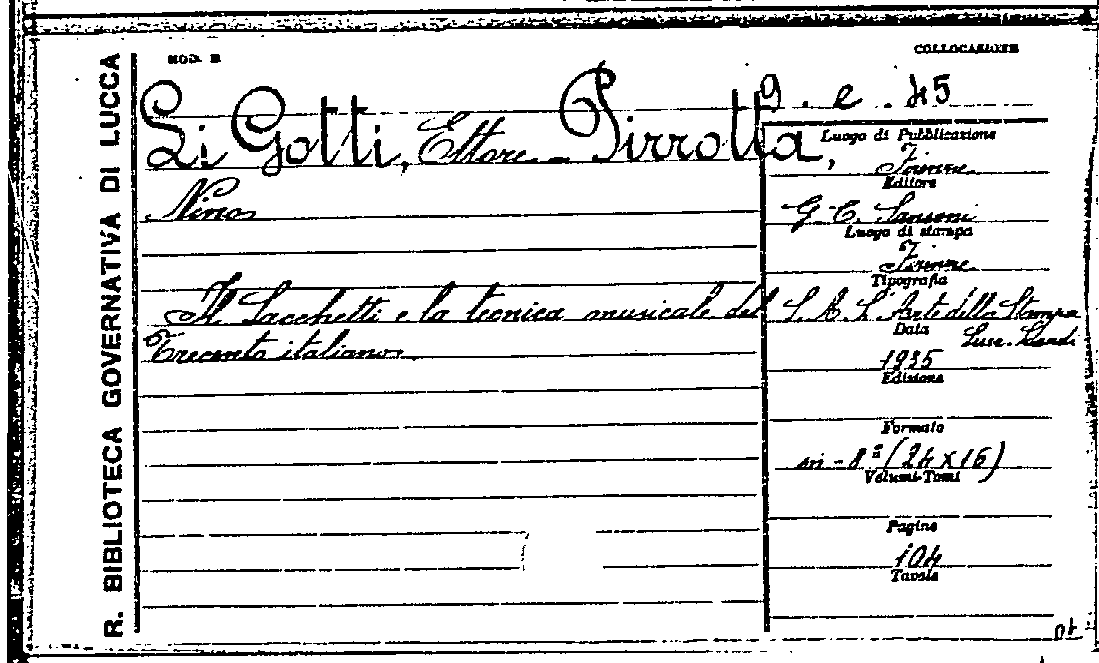 R. BIBLIOTECA GOVERNATIVA DI LUCCA
MOD. B
COLLOCAZIONE
9. e. 45
Li Gotti, Ettore - Pirrotta,
Nino
Il Sacchetti e la tecnica musicale del
Trecento italiano.
Luogo di Pubblicazione
Firenze
Editore
G. C. Sansoni
Luogo di stampa
Firenze
Tipografia
S. A. L'Arte della Stampa
Succ. Landi
Data
1935
Edizione
Formato
in-8º (24x16)
Volumi-Tomi
Pagine
104
Tavole